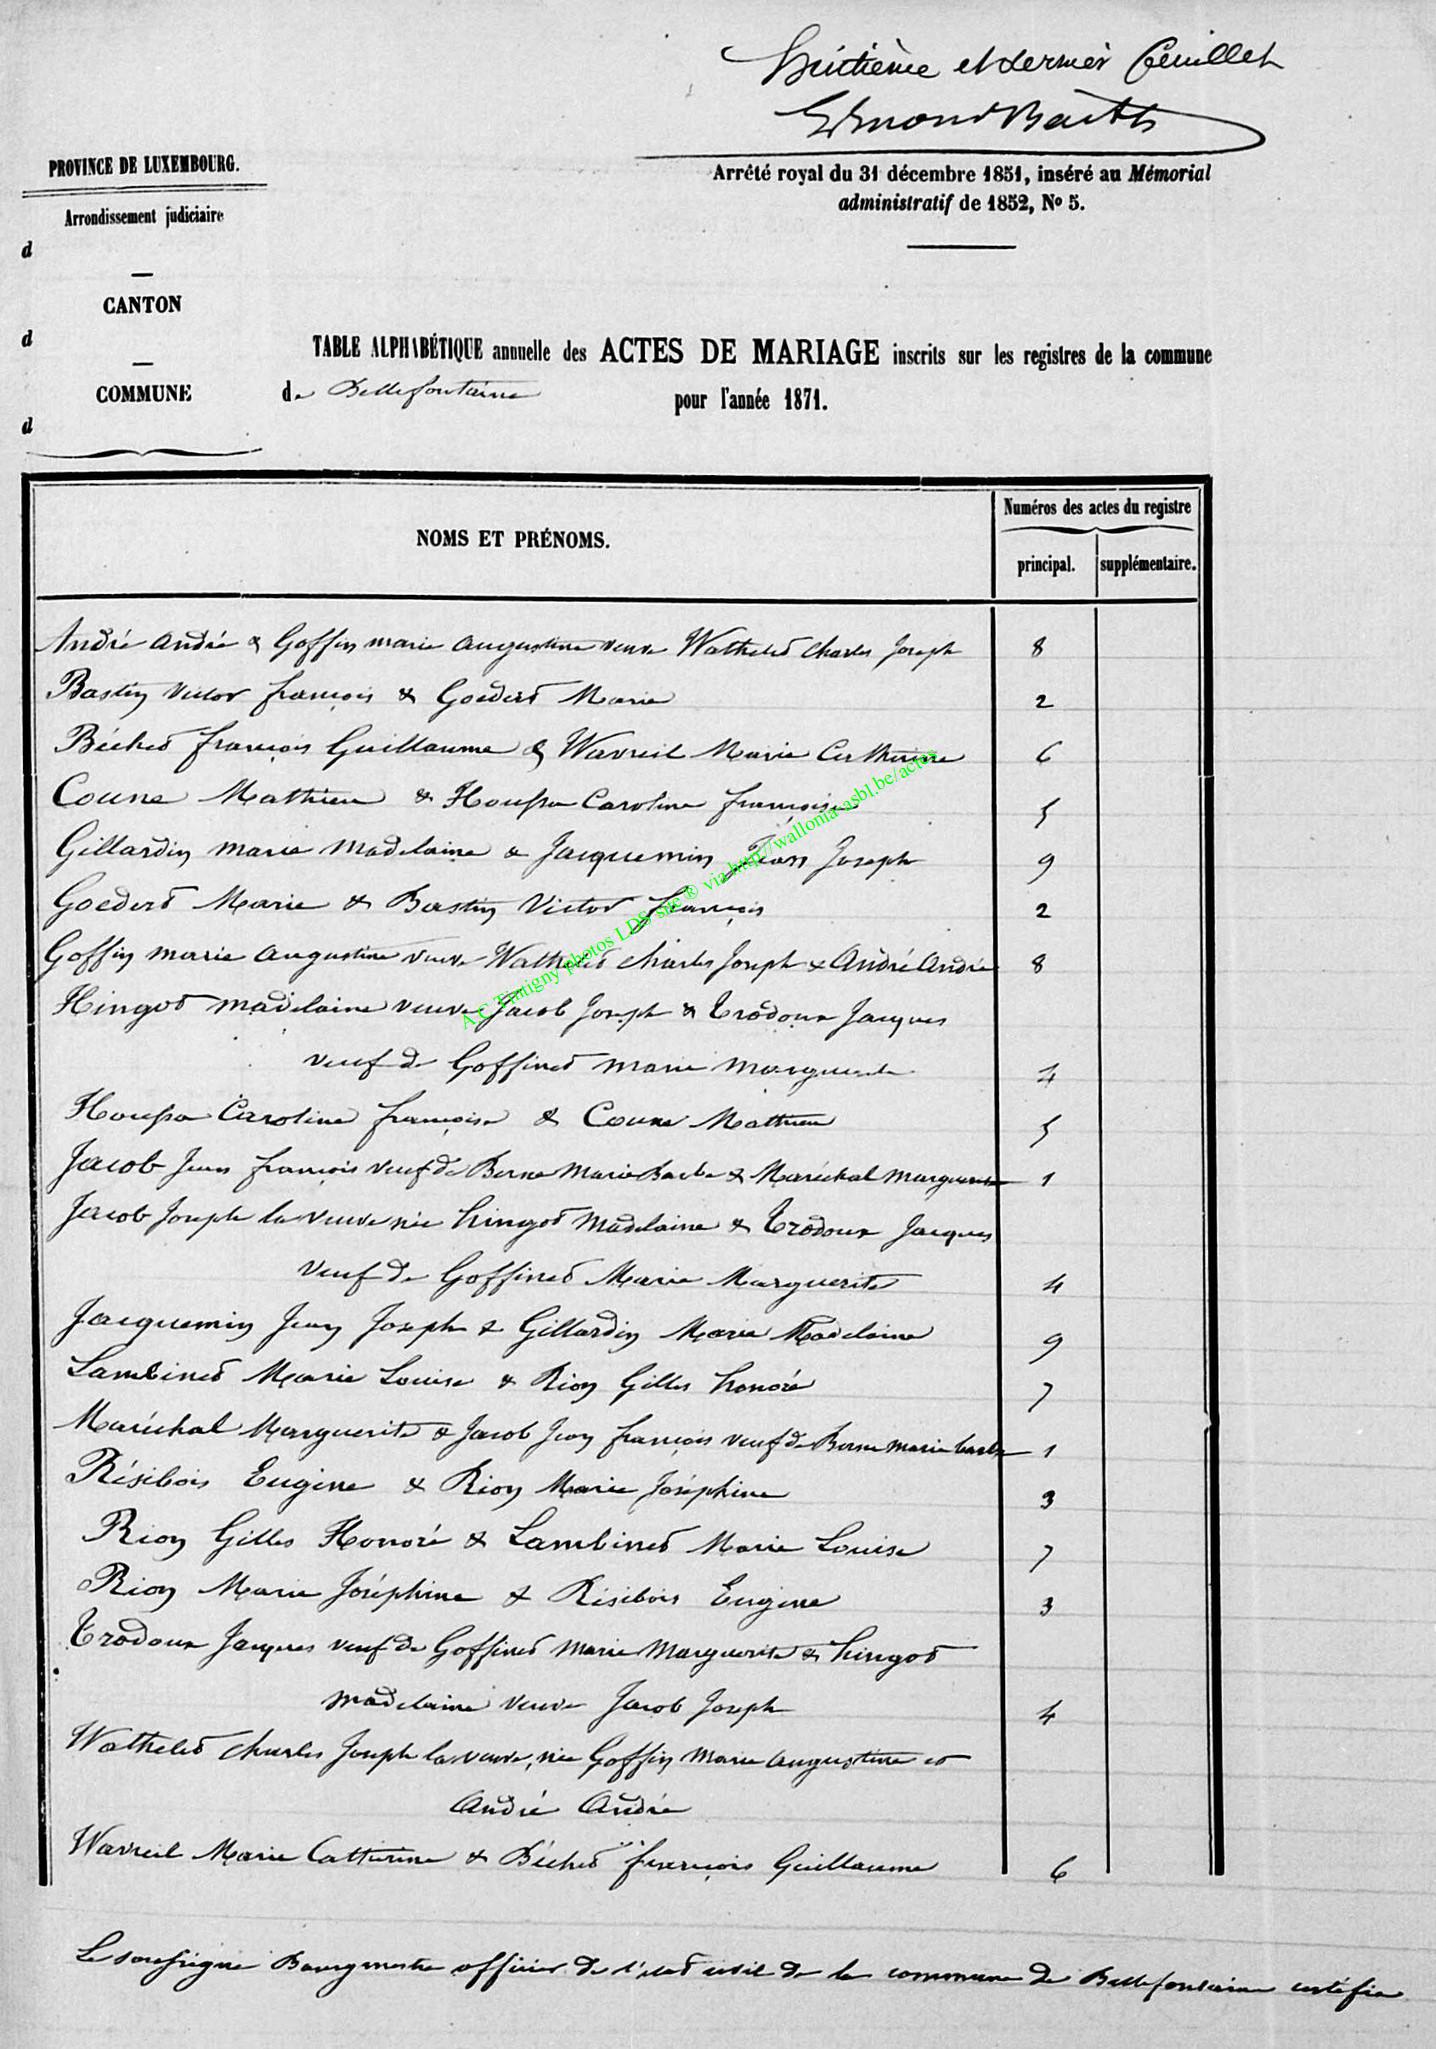 huitième et dernier feuillet
Edmond Barth
PROVINCE DE LUXEMBOURG.
Arrêté royal du 31 décembre 1851, inséré au Mémorial
administratif de 1852, No 5.
Arrondissement judiciaire
d
CANTON
d
TABLE ALPHABÉTIQUE annuelle des ACTES DE MARIAGE inscrits sur les registres de la commune
COMMUNE
de Bellefontaine
pour l'année 1871.
d
NOMS ET PRÉNOMS.
Numéros des actes du registre
principal. supplémentaire.
André André & Goffin marie augustine veuve Wathelet charles Joseph 8
Bastin Victor françois & Goedert Marie 2
Béchet françois Guillaume & Wavreil Marie Catherine 6
Coune Mathieu & Houpa Caroline françoise 5
Gillardin marie madelaine & Jacquemin Jean Joseph 9
Goedert Marie & Bastin Victor françois 2
Goffin marie augustine veuve Wathelet charles Joseph & André André 8
Hingot madelaine veuve Jacob Joseph & Trodoux Jacques
veuf de Goffinet marie marguerite 4
Houpa Caroline françoise & Coune Mathieu 5
Jacob Jean françois veuf de Borne Marie Barbe & Maréchal marguerite 1
Jacob Joseph la veuve née hingot madelaine & Trodoux Jacques
veuf de Goffinet Marie Marguerite 4
Jacquemin Jean Joseph & Gillardin Marie Madelaine 9
Lambinet Marie Louise & Rion Gilles honoré 7
Maréchal Marguerite & Jacob Jean françois veuf de Borne marie barbe 1
Résibois Eugène & Rion Marie Joséphine 3
Rion Gilles Honoré & Lambinet Marie Louise 7
Rion Marie Joséphine & Résibois Eugène 3
Trodoux Jacques veuf de Goffinet Marie Marguerite & hingot
madelaine veuve Jacob Joseph 4
Wathelet charles Joseph la veuve, née Goffin Marie augustine et
André André
Wavreil Marie Catherine & Béchet françois Guillaume 6
Le soussigné Bourgmestre officier de l'état civil de la commune de Bellefontaine certifie
A.C. Tintigny photos LDS site® via http://wallonia-asbl.be/actes